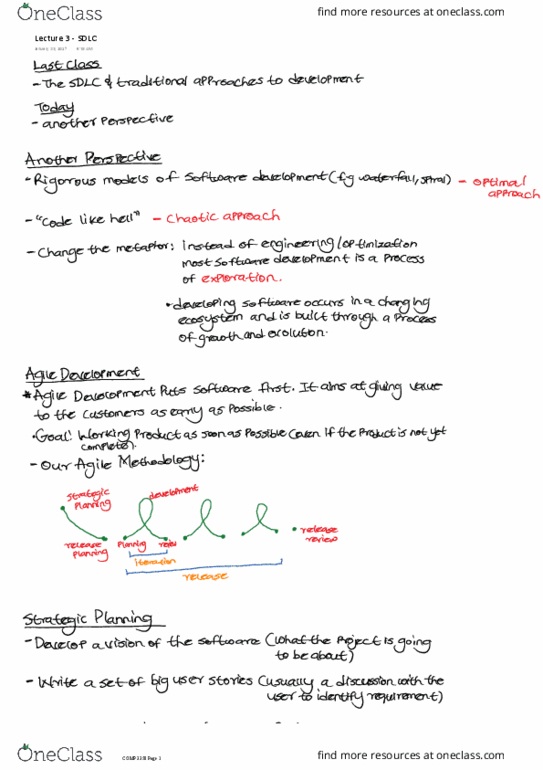 OneClass
find more resources at oneclass.com
Lecture 3 - SDLC
Last Class
- The SDLC & traditional approaches to development
Today
- another perspective
Another Perspective
- Rigorous models of software development (Eg waterfall, spiral) - optimal
approach
- "Code like hell" - Chaotic approach
- Change the metaphor: instead of engineering/optimization
most software development is a process
of exploration.
• developing software occurs in a changing
ecosystem and is built through a process
of growth and evolution.
Agile Development
* Agile Development puts software first. It aims at giving value
to the customers as early as possible.
• Goal: Working product as soon as possible (even if the product is not yet
complete).
- Our Agile Methodology:
strategic
planning
development
release
planning
planning
review
iteration
release
• release
review
Strategic Planning
- Develop a vision of the software (what the project is going
to be about)
- Write a set of big user stories (usually a discussion with the
user to identify requirement)
OneClass
find more resources at oneclass.com